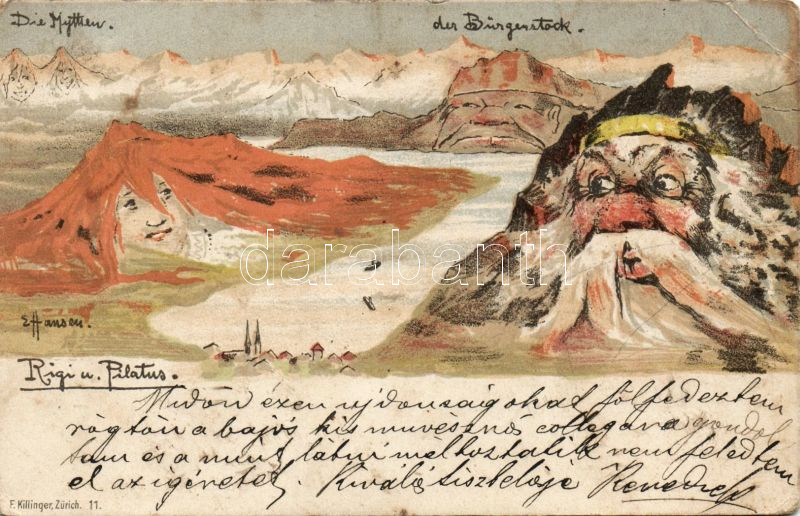 Die Mythen.
der Bürgenstock.
darabanth
EHansen.
Rigi u. Pilatus.
Midőn ezen ujdonságokat fölfedeztem
rögtön a bajos kis művésznő collegára gondol
tam és a mint látni méltoztatik nem feledtem
el az igéretet. Kiváló tisztelője
F. Killinger, Zürich. 11.